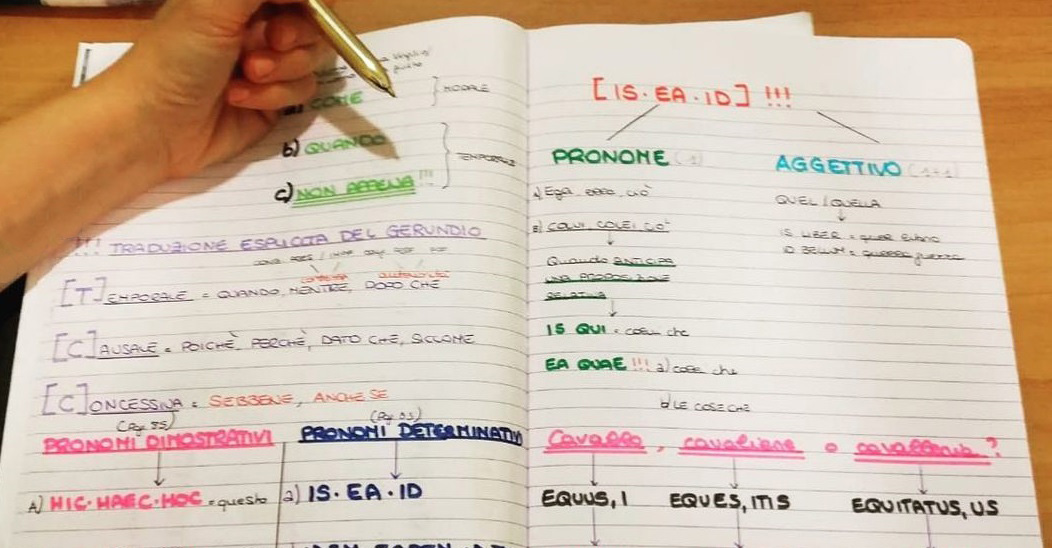 a) COME
} MODALE
b) QUANDO
c) NON APPENA !!!
} TEMPORALE
!!! TRADUZIONE ESPLICITA DEL GERUNDIO
[T]EMPORALE = QUANDO, MENTRE, DOPO CHE
[C]AUSALE = POICHÈ, PERCHÈ, DATO CHE, SICCOME
[C]ONCESSIVA = SEBBENE, ANCHE SE
PRONOMI DIMOSTRATIVI
A) HIC·HAEC·HOC = questo
PRONOMI DETERMINATIVI
a) IS·EA·ID
[IS·EA·ID] !!!
PRONOME (1)
A) Egli, esso, ciò
B) COLUI COLEI CIO'
Quando ANTICIPA
UNA PROPOSIZIONE
RELATIVA
IS QUI = colui che
EA QUAE !!! a) cose che
b) LE COSE CHE
AGGETTIVO (1+1)
QUEL / QUELLA
IS LIBER = quel libro
ID BELLUM = quella guerra
Cavallo, cavaliere o cavalleria?
EQUUS, I
EQUES, ITIS
EQUITATUS, US